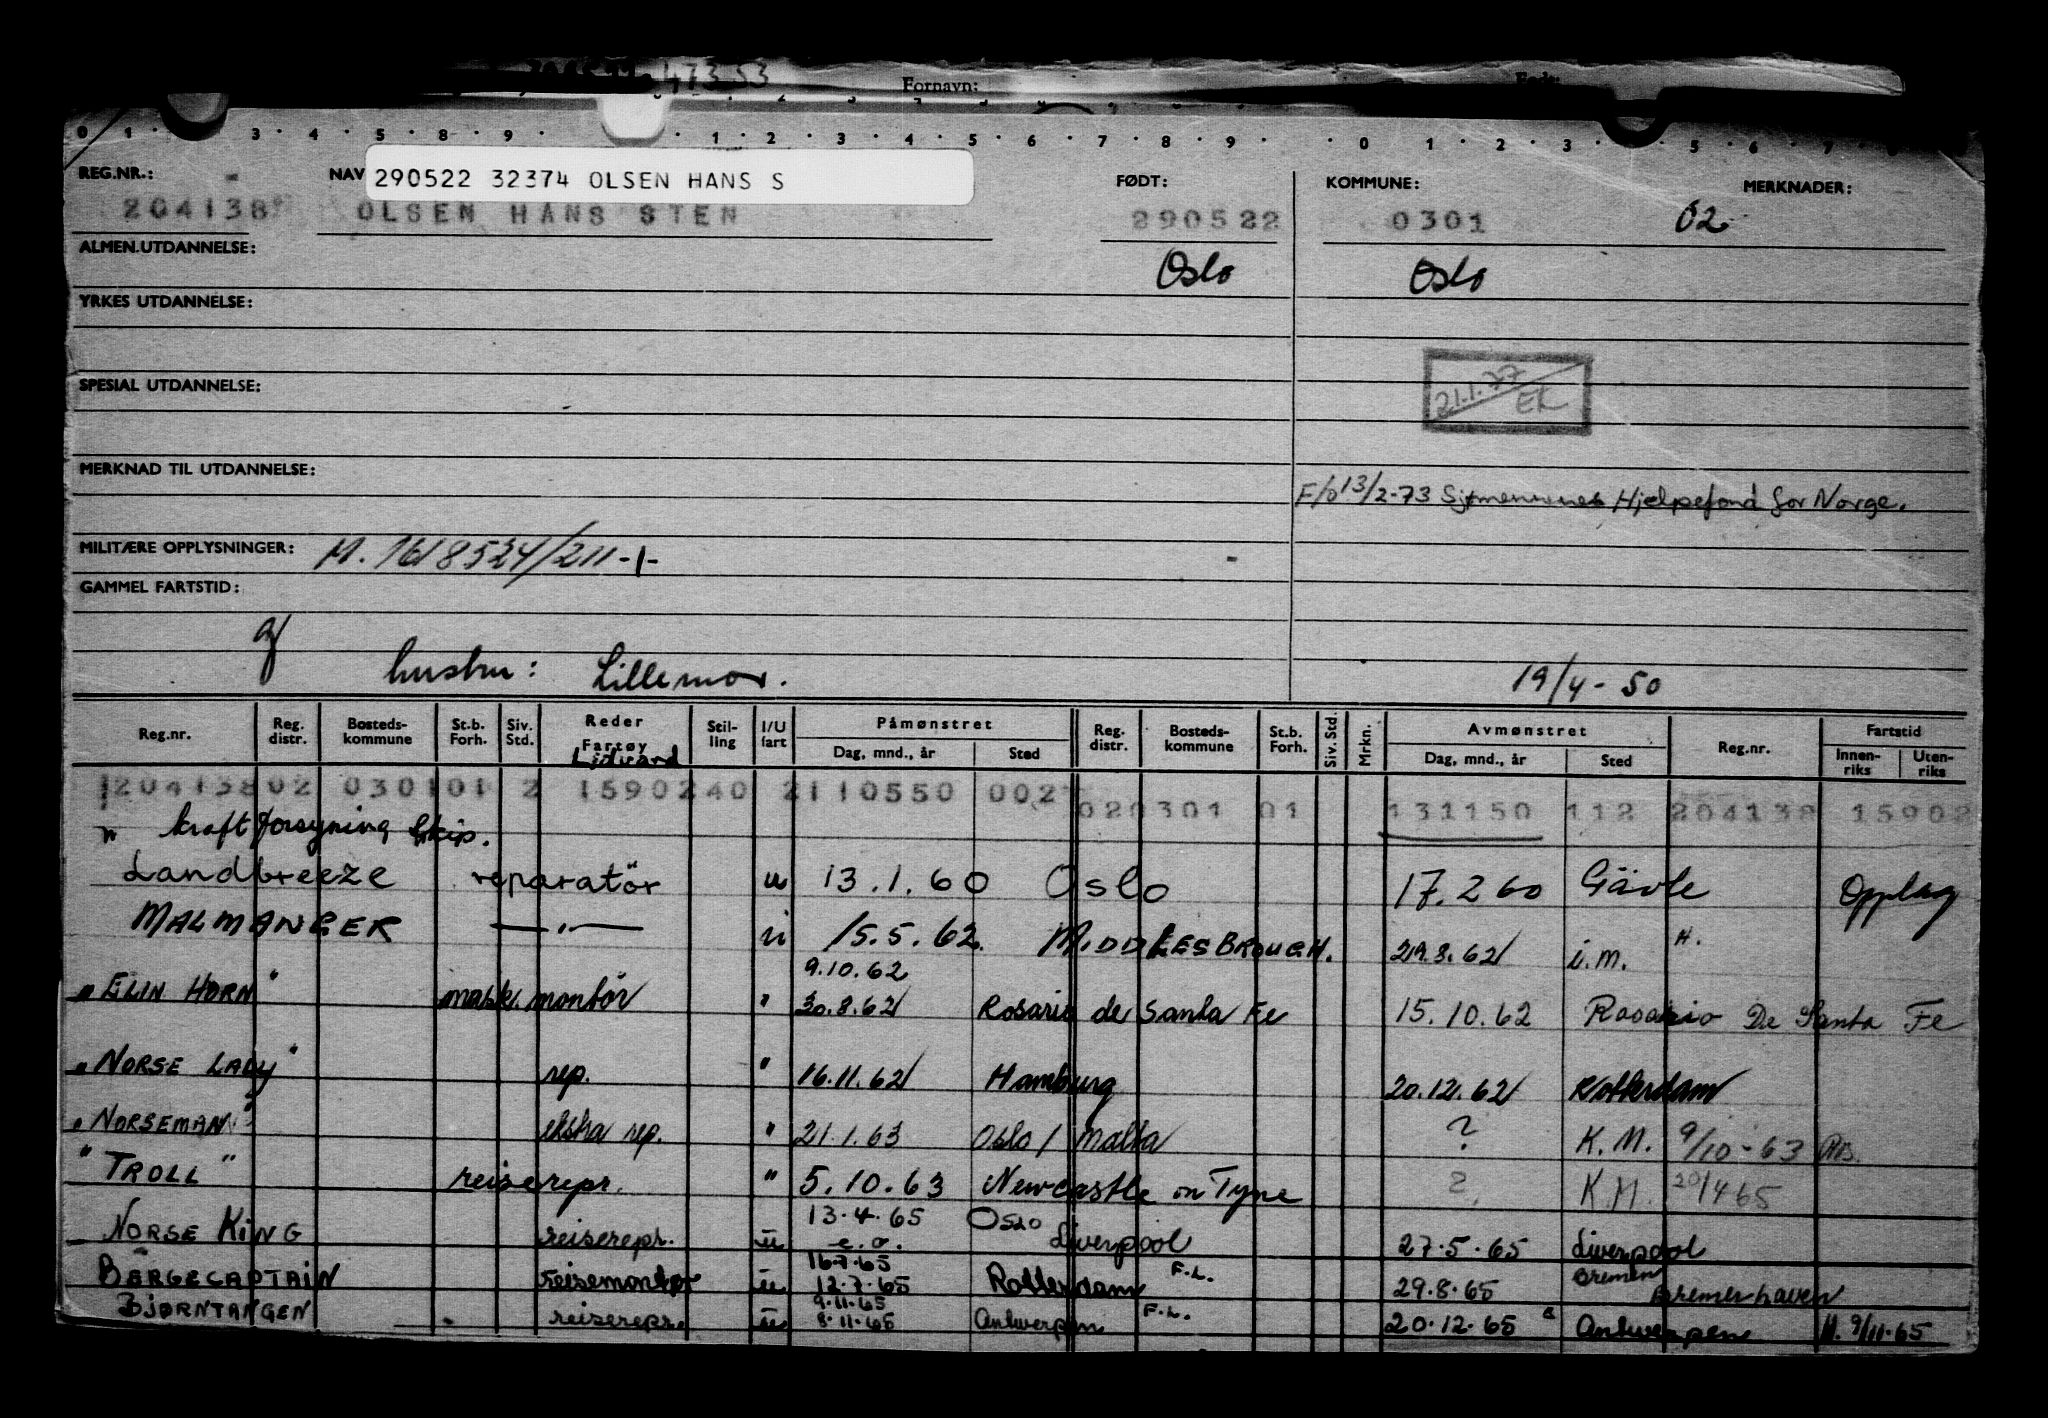 47353
Fornavn:
0 1 · 3 · 4 · 5 · 8 · 9 · 1 · 2 · 3 · 4 · 5 · 6 · 7 · 8 · 9 · 0 1 · 2 · 3 · 5 · 6 · 7
REG.NR.: NAV 290522 32374 OLSEN HANS S FØDT: KOMMUNE: MERKNADER:
204138 OLSEN HANS STEN 290522 0301 02
ALMEN.UTDANNELSE: Oslo Oslo
YRKES UTDANNELSE:
SPESIAL UTDANNELSE: 21.1.77 EK
MERKNAD TIL UTDANNELSE:
F/o 13/2-73 Sjømennenes Hjelpefond for Norge.
MILITÆRE OPPLYSNINGER: M. 1618524/211-1-
GAMMEL FARTSTID:
hustru: Lillemor. 19/4-50
Reg.nr. Reg. distr. Bosteds-kommune St.b. Forh. Siv. Std. Reder Fartøy Stil-ling I/U fart Påmønstret Dag, mnd., år Sted Reg. distr. Bosteds-kommune St.b. Forh. Siv. Std. Mrkn. Avmønstret Dag, mnd., år Sted Reg.nr. Fartstid Innen-riks Uten-riks
Lidvard
120413802 030101 2 1590240 2110550 002 020301 01 131150 112 204138 15902
" kraftforsyning Skip.
Landbreeze reparatör u 13.1.60 Oslo 17.2 60 Gävle Opplag
MALMANGER —"— u 15.5.62. MIDDLESBROUGH. 29.8.62 i.m. H.
9.10.62
"ELIN HORN" mask. montör " 30.8.62 Rosario de Santa Fe 15.10.62 Rosario De Santa Fe
"NORSE LADY" rep. " 16.11.62 Hamburg 20.12.62 Rotterdam
"NORSEMAN" ekstra rep. " 21.1.63 Oslo / Malta ? K.M. 9/10-63
"TROLL" reiserepr. " 5.10.63 Newcastle on Tyne ? K.M. 20/4 65
13.4.65 Oslo
NORSE KING reiserepr. u e.o. Liverpool 27.5.65 Liverpool
16.7.65
BERGECAPTAIN reisemontør u 12.7.65 Rotterdam F.L. 29.8.65 Bremen Bremerhaven
9.11.65
BJØRNTANGEN reiserepr. u 8.11.65 Antwerpen F.L. 20.12.65 Antwerpen H. 9/11.65